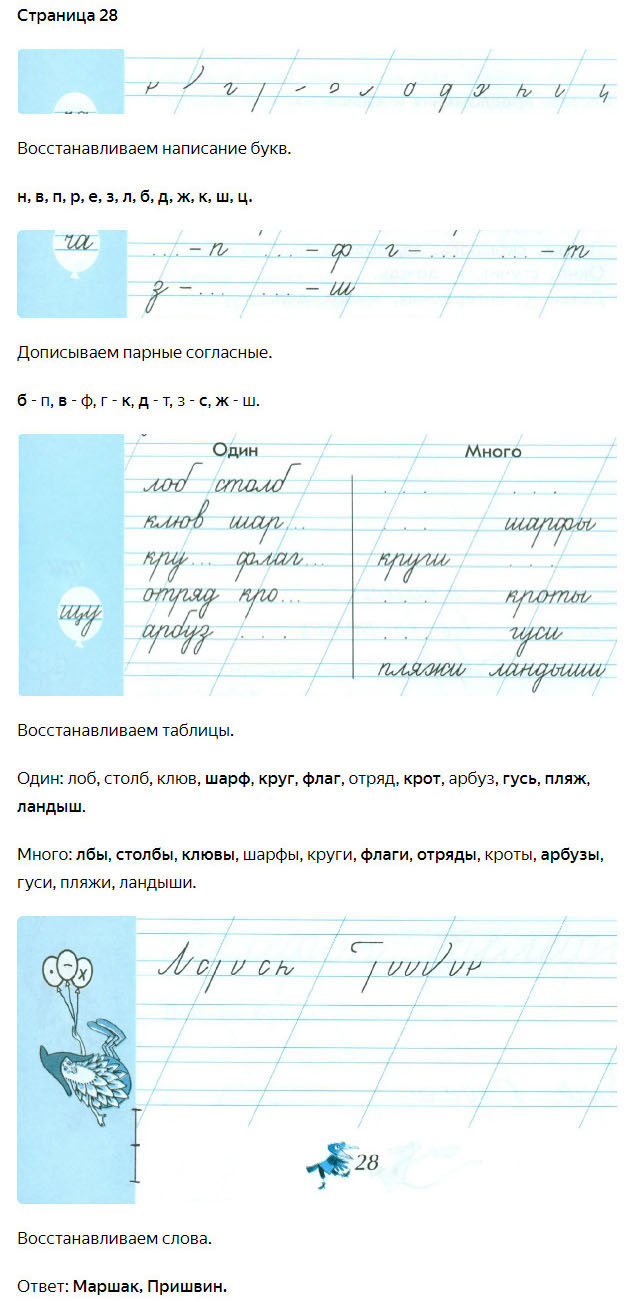 Страница 28
Восстанавливаем написание букв.
н, в, п, р, е, з, л, б, д, ж, к, ш, ц.
ча ... – п ... – ф г – ... ... – т
з – ... ... – ш
Дописываем парные согласные.
б - п, в - ф, г - к, д - т, з - с, ж - ш.
Один Много
лоб столб ... ...
клюв шар... ... шарфы
кру... флаг... круги ...
отряд кро... ... кроты
щу
арбуз ... ... гуси
пляжи ландыши
Восстанавливаем таблицы.
Один: лоб, столб, клюв, шарф, круг, флаг, отряд, крот, арбуз, гусь, пляж,
ландыш.
Много: лбы, столбы, клювы, шарфы, круги, флаги, отряды, кроты, арбузы,
гуси, пляжи, ландыши.
28
Восстанавливаем слова.
Ответ: Маршак, Пришвин.